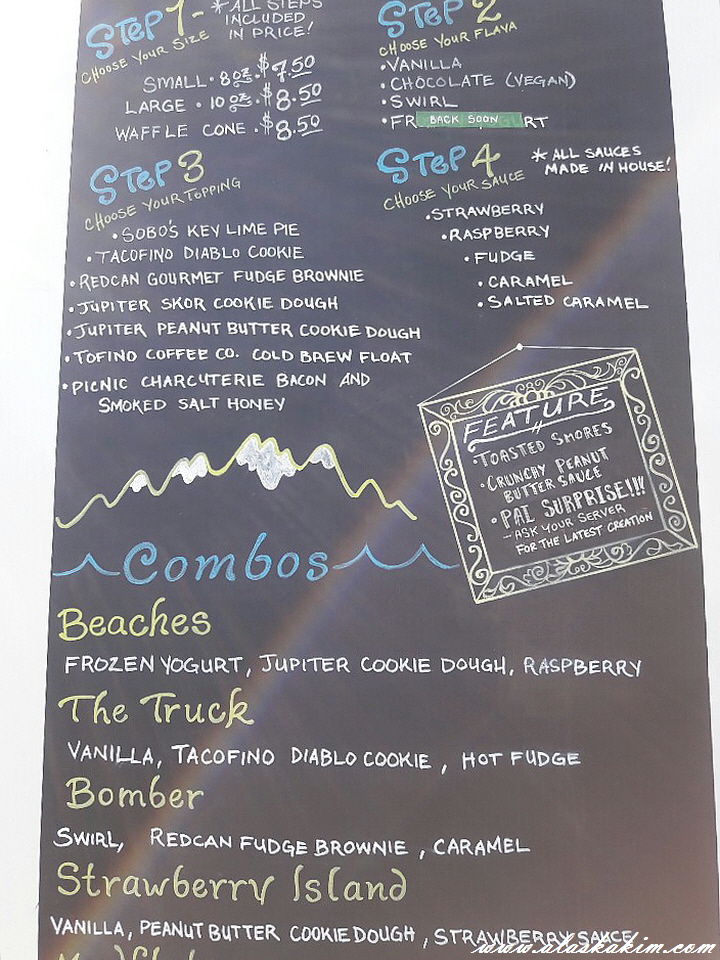 STEP 1-
* ALL STEPS
INCLUDED
IN PRICE!
CHOOSE YOUR SIZE
SMALL · 8oz · $7.50
LARGE · 10oz · $8.50
WAFFLE CONE · $8.50
STEP 2
CHOOSE YOUR FLAVA
· VANILLA
· CHOCOLATE (VEGAN)
· SWIRL
· FR BACK SOON RT
STEP 3
CHOOSE YOUR TOPPING
· SOBO'S KEY LIME PIE
· TACOFINO DIABLO COOKIE
· REDCAN GOURMET FUDGE BROWNIE
· JUPITER SKOR COOKIE DOUGH
· JUPITER PEANUT BUTTER COOKIE DOUGH
· TOFINO COFFEE CO. COLD BREW FLOAT
· PICNIC CHARCUTERIE BACON AND
SMOKED SALT HONEY
STEP 4
* ALL SAUCES
MADE IN HOUSE!
CHOOSE YOUR SAUCE
· STRAWBERRY
· RASPBERRY
· FUDGE
· CARAMEL
· SALTED CARAMEL
FEATURE
· TOASTED SMORES
· CRUNCHY PEANUT
BUTTER SAUCE
· PAL SURPRISE!!!
- ASK YOUR SERVER
FOR THE LATEST CREATION
Combos
Beaches
FROZEN YOGURT, JUPITER COOKIE DOUGH, RASPBERRY
The Truck
VANILLA, TACOFINO DIABLO COOKIE, HOT FUDGE
Bomber
SWIRL, REDCAN FUDGE BROWNIE, CARAMEL
Strawberry Island
VANILLA, PEANUT BUTTER COOKIE DOUGH, STRAWBERRY SAUCE
www.alaskakim.com